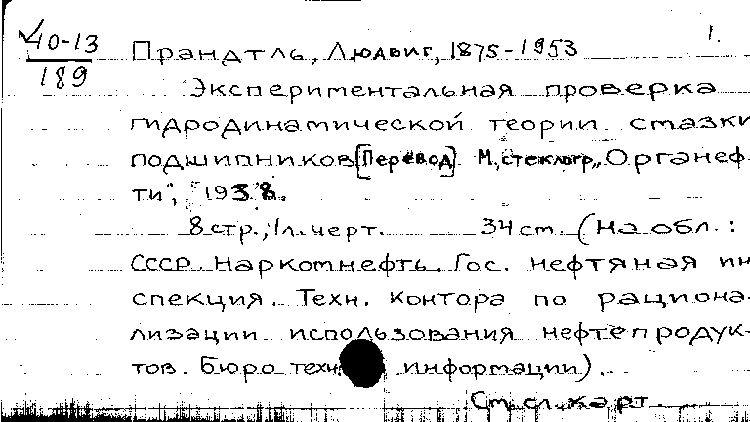 1.
40-13
189
Прандтль, Людвиг, 1875-1953
Экспериментальная проверка
гидродинамической теории смазки
подшипников [Перевод] М, стеклогр„ Органеф-
ти", 1938.
8 стр.; 1л. черт. 34 cm. (На обл.:
СССР. Наркомнефть. Гос. нефтяная ин
спекция. Техн. контора по рациона-
лизации использования нефтепродук-
тов. Бюро техн информации).
См. сл. карт.